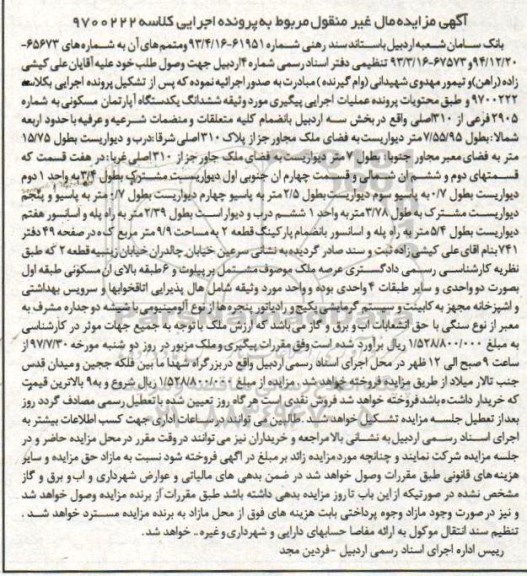 آگهی مزایده مال غیر منقول مربوط به پرونده اجرایی کلاسه ۹۷۰۰۲۲۲
بانک سامان شعبه اردبیل باستناد سند رهنی شماره ۶۱۹۵۱-۹۳/۴/۱۶ ومتمم های آن به شماره های ۶۵۶۷۳-
۹۴/۱۲/۲۰ و ۶۷۵۷۳-۹۳/۳/۱۶ تنظیمی دفتر اسناد رسمی شماره ۴ اردبیل جهت وصول طلب خود علیه آقایان علی کیشی
زاده (راهن) و تیمور مهدوی شهیدانی (وام گیرنده) مبادرت به صدور اجرائیه نموده که پس از تشکیل پرونده اجرایی بکلاسه
۹۷۰۰۲۲۲ و طبق محتویات پرونده عملیات اجرایی پیگیری مورد وثیقه ششدانگ یکدستگاه آپارتمان مسکونی به شماره
۲۹۰۵ فرعی از ۳۱۰ اصلی واقع در بخش سه اردبیل بانضمام کلیه متعلقات و منضمات شرعیه و عرفیه با حدود اربعه
شمالا: بطول ۷/۵۵/۹۵ متر دیواریست به فضای ملک مجاور جز از پلاک ۳۱۰ اصلی شرقا: درب و دیواریست بطول ۱۵/۷۵
متر به فضای معبر مجاور جنوبا: بطول ۷ متر دیواریست به فضای ملک جاور جز از ۳۱۰ اصلی غربا: در هفت قسمت که
قسمتهای دوم و ششم ان شمالی و قسمت چهارم ان جنوبی اول دیواریست مشترک بطول ۳/۴ به واحد ۱ دوم
دیواریست بطول ۰/۷ به پاسیو سوم دیواریست بطول ۲/۵ متر به پاسیو چهارم دیواریست بطول ۰/۷ متر به پاسیو و پنجم
دیواریست مشترک به طول ۳/۷۸ متر به واحد ۱ ششم درب و دیوار است بطول ۲/۳۹ متر به راه پله و آسانسور هفتم
دیواریست بطول ۵/۴ متر به راه پله و اسانسور بانضمام پارکینگ قطعه ۲ به مساحت ۹/۹ متر مربع که در صفحه ۴۹ دفتر
۷۴۱ بنام اقای علی کیشی زاده ثبت و سند صادر گردیده به نشانی سرعین خیابان چالدران خیابان زینبیه قطعه ۲ که طبق
نظریه کارشناسی رسمی دادگستری عرصه ملک موصوف مشتمل بر پیلوت و ۶ طبقه بالای آن مسکونی طبقه اول
بصورت دو واحدی و سایر طبقات ۴ واحدی بوده و واحد مورد وثیقه شامل هال پذیرایی اتاقخوابها و سرویس بهداشتی
و اشپزخانه مجهز به کابینت و سیستم گرمایش پکیج و رادیاتور پنجره ها از نوع آلومینیومی با شیشه دو جداره مشرف به
معبر از نوع سنگی با حق انشعابات اب و برق و گاز می باشد که ارزش ملک با توجه به جمیع جهات موثر در کارشناسی
به مبلغ ۱/۵۲۸/۸۰۰/۰۰۰ ریال برآورد شده است وفق مقررات پیگیری و ملک مزبور در روز دو شنبه مورخه ۹۷/۷/۳۰ از
ساعت ۹ صبح الی ۱۲ ظهر در محل اجرای اسناد رسمی اردبیل واقع در بزرگراه شهدا ما بین فلکه ججین و میدان قدس
جنب تالار میلاد از طریق مزایده فروخته خواهد شد . مزایده از مبلغ ۱/۵۲۸/۸۰۰/۰۰۰ ریال شروع و به بالاترین قیمت
که خریدار داشته باشد فروخته خواهد شد فروش نقدی است هر گاه روز تعیین شده با تعطیل رسمی مصادف گردد روز
بعد از تعطیل جلسه مزایده تشکیل خواهد شد . طالبین می توانند در ساعات اداری جهت کسب اطلاعات بیشتر به
اجرای اسناد رسمی اردبیل به نشانی بالا مراجعه و خریداران نیز می توانند در وقت مقرر در محل مزایده حاضر و در
جلسه مزایده شرکت نمایند و چنانچه مورد مزایده زائد بر مبلغ در آگهی فروخته شود نسبت به مازاد حق مزایده و سایر
هزینه های قانونی طبق مقررات وصول خواهد شد در ضمن بدهی های مالیاتی و عوارض شهرداری و اب و برق و گاز
مشخص نشده در صورتیکه از این باب تا روز مزایده بدهی داشته باشد طبق مقررات از برنده مزایده وصول خواهد شد
و نیز در صورت وجود مازاد وجوه پرداختی بابت هزینه های فوق از محل مازاد به برنده مزایده مسترد خواهد شد .
تنظیم سند انتقال موکول به ارائه مفاصا حسابهای دارایی و شهرداری و غیره .. خواهد شد.
رییس اداره اجرای اسناد رسمی اردبیل -فردین مجد